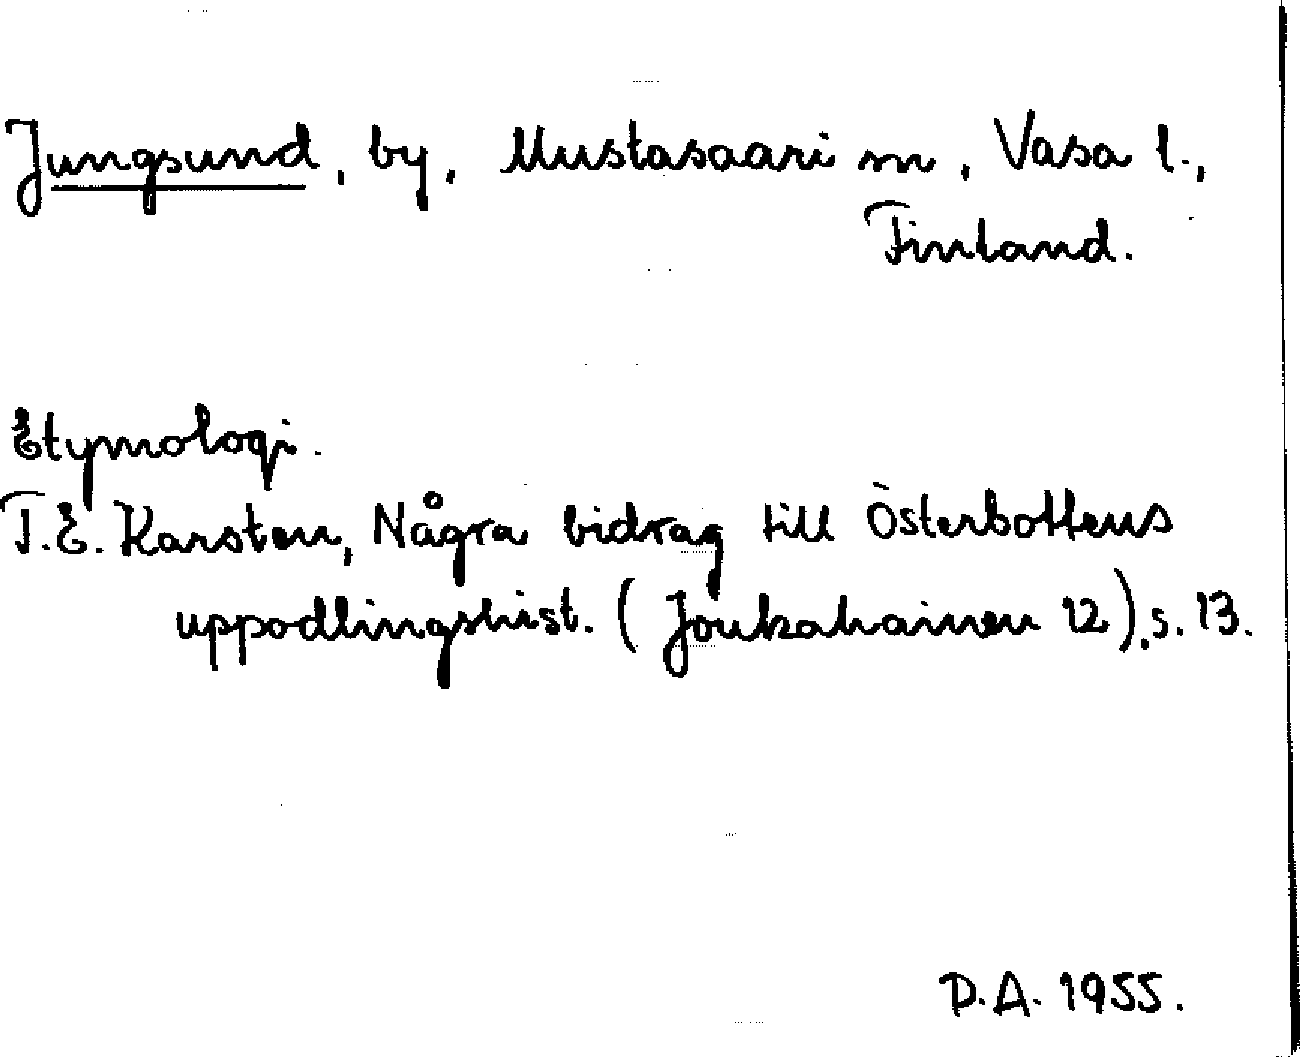 Jungsund, by, Mustasaari sn, Vasa l.,
Finland.
Etymologi.
T.E. Karsten, Några bidrag till Österbottens
uppodlingshist. (Joukahainen 12), s. 13.
P.A. 1955.